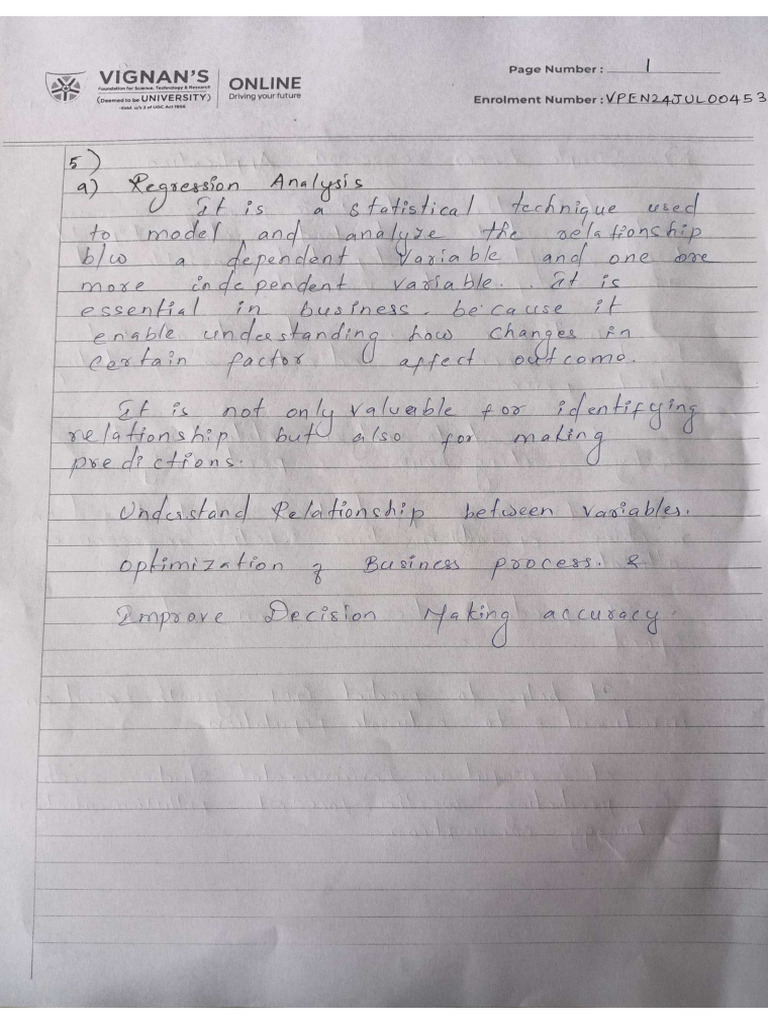 VIGNAN'S
Foundation for Science, Technology & Research
(Deemed to be UNIVERSITY)
-Estd. u/s 3 of UGC Act 1956
ONLINE
Driving your future
Page Number : 1
Enrolment Number : VPEN24JUL00453
5)
a) Regression Analysis
It is a statistical technique used
to model and analyze the relationship
b/w a dependent variable and one ore
more independent variable. It is
essential in business. because it
enable understanding how changes in
certain factor affect outcome.
It is not only valuable for identifying
relationship but also for making
predictions.
Understand Relationship between variables.
Optimization of Business process. &
Improve Decision Making accuracy.